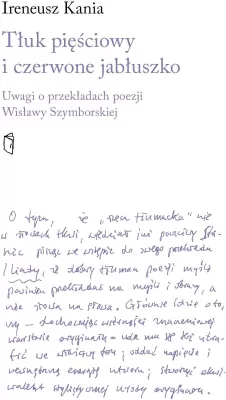 Ireneusz Kania
Tłuk pięściowy
i czerwone jabłuszko
Uwagi o przekładach poezji
Wisławy Szymborskiej
O tym, że „rzecz tłumacka” nie
w słowach tkwi, wiedział już poczciwy Sta-
pisząc we wstępie do swego przekładu
Iliady, że dobry tłumacz poezji myśli
powinien przekładać na myśli i obrazy, a
nie słowa na słowa. Głównie idzie o to,
czy — dochowując wierności znaczeniowej
warstwie oryginału — uda mu się też utra-
fić we właściwy ton; oddać napięcie i
wewnętrzną energię utworu; stworzyć ekwi-
walent stylistycznej urody oryginału.